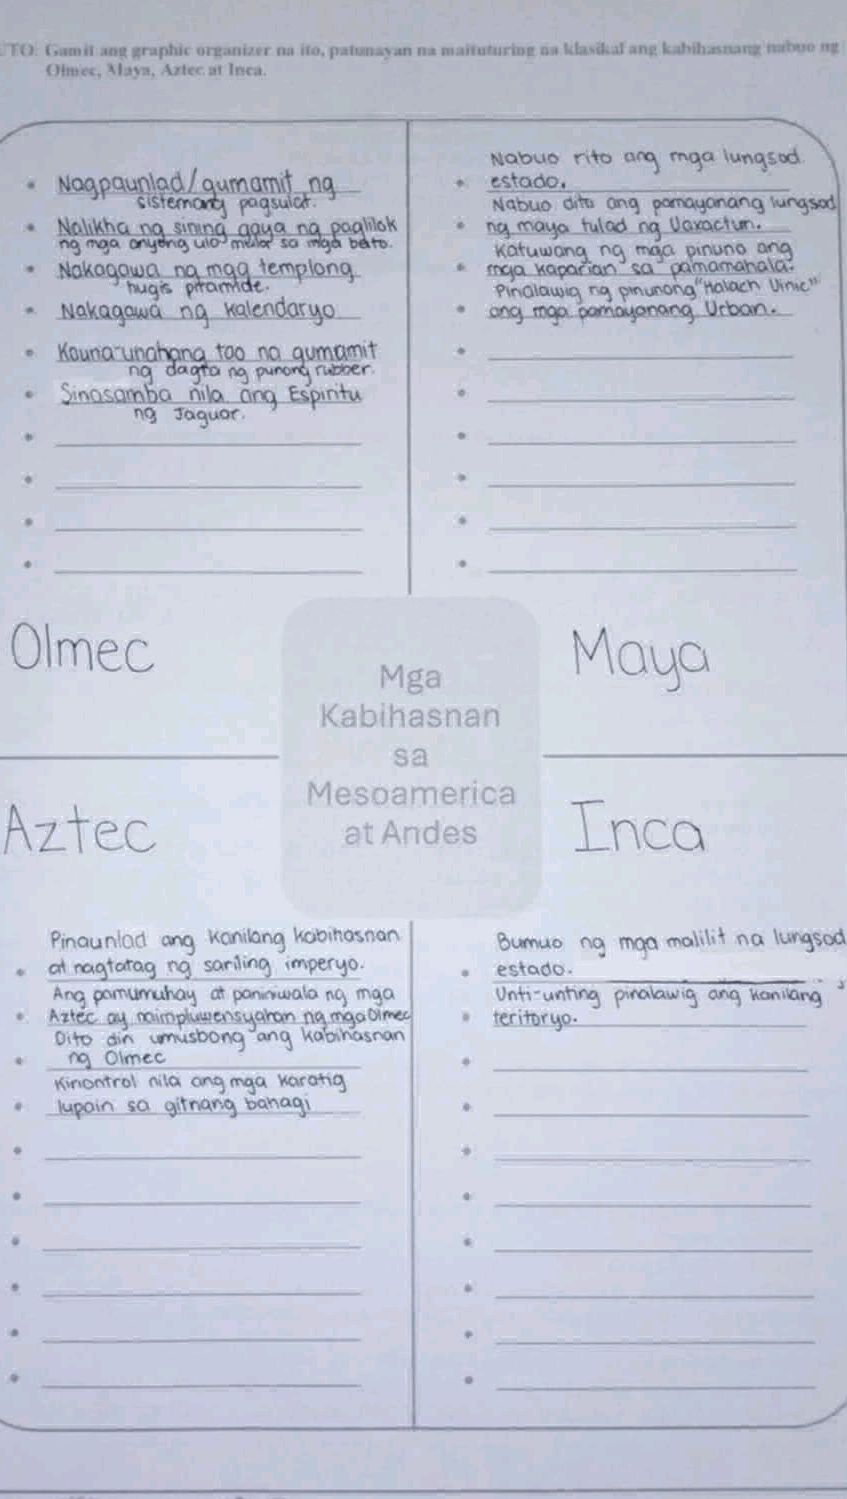 UTO: Gamit ang graphic organizer na ito, patunayan na maituturing na klasikal ang kabihasnang nabuo ng
Olmec, Maya, Aztec at Inca.
Nagpaunlad/gumamit ng
sistemang pagsulat.
Nalikha ng sining gaya ng paglilok
ng mga anyong ulo mula sa mga bato.
Nakagawa ng mga templong
hugis piramide.
Nakagawa ng kalendaryo
Kauna-unahang tao na gumamit
ng dagta ng punong rubber.
Sinasamba nila ang Espiritu
ng Jaguar.
Olmec
Nabuo rito ang mga lungsod
estado.
Nabuo dito ang pamayanang lungsod
ng maya tulad ng Uaxactun.
Katuwang ng mga pinuno ang
mga kaparian sa pamamahala.
Pinalawig ng pinunong "Halach Uinic"
ang mga pamayanang Urban.
Maya
Mga
Kabihasnan
sa
Mesoamerica
at Andes
Aztec
Pinaunlad ang kanilang kabihasnan
at nagtatag ng sariling imperyo.
Ang pamumuhay at paniniwala ng mga
Aztec ay naimpluwensyahan ng mga Olmec
Dito din umusbong ang kabihasnan
ng Olmec
Kinontrol nila ang mga karatig
lupain sa gitnang bahagi
Inca
Bumuo ng mga maliliit na lungsod
estado.
Unti-unting pinalawig ang kanilang
teritoryo.